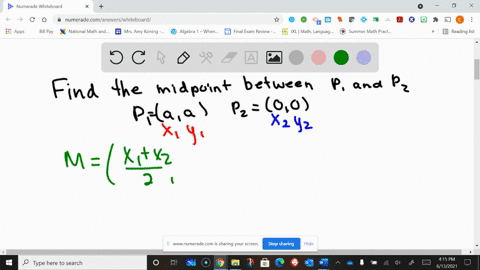 Numerade Whiteboard
numerade.com/answers/whiteboard/
Apps
Bill Pay
National Math and...
Mrs. Amy Koning -...
Algebra 1 – When...
Final Exam Review -...
IXL | Math, Languag...
Smarter Mathemat...
Reading list
Find the midpoint between P₁ and P₂
P₁=(a,a) P₂=(0,0)
x₁ y₁ x₂ y₂
M = ( x₁+x₂
2 ,
www.numerade.com is sharing your screen.
Stop sharing
Hide
Type here to search
4:15 PM
6/13/2021